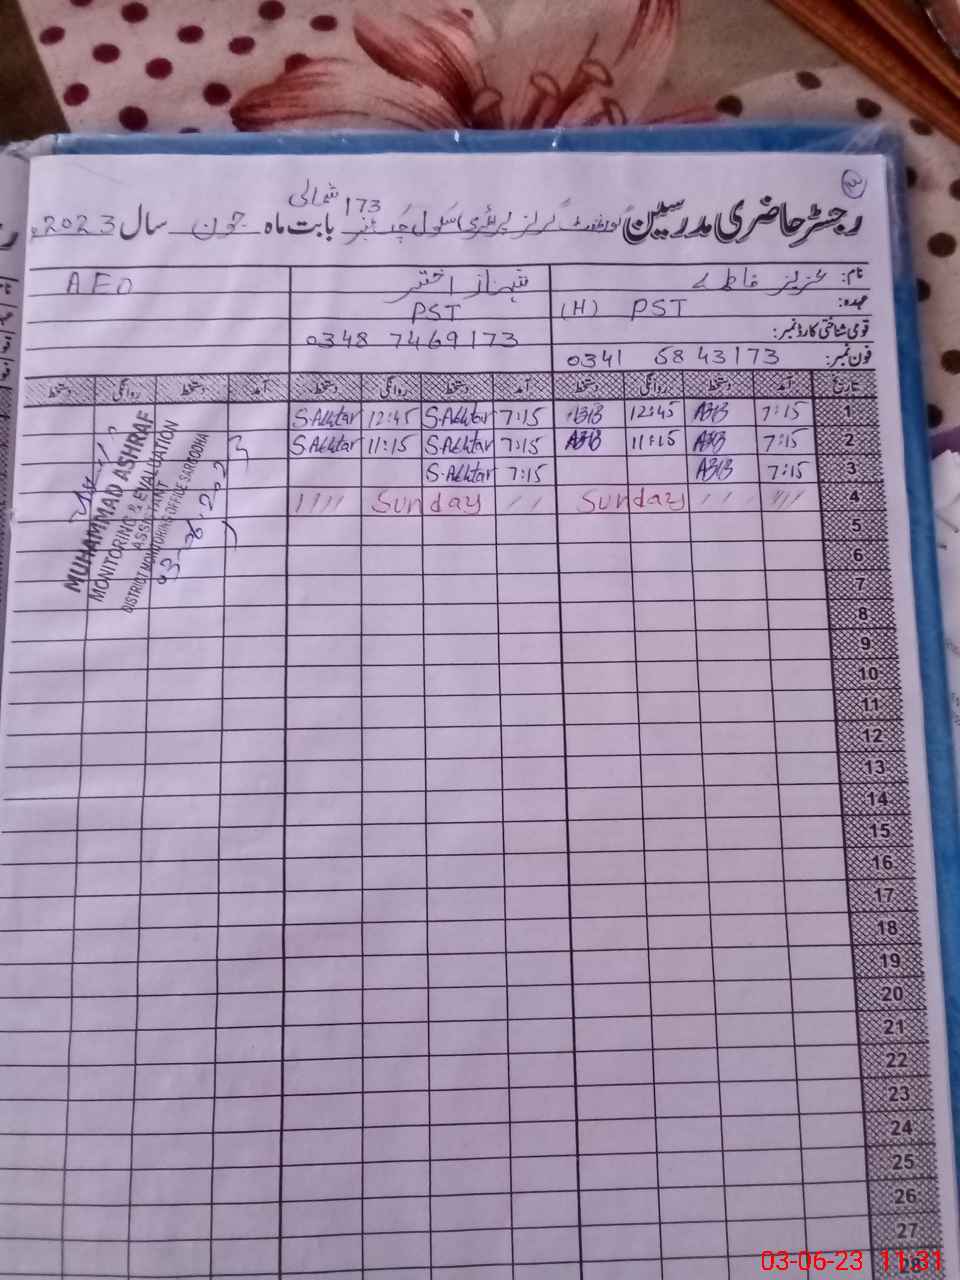 رجسٹر حاضری مدرسین گورنمنٹ گرلز پرائمری سکول چک نمبر 173 شمالی بابت ماہ جون سال 2023ء
نام: عزیز فاطمہ شہناز اختر AEO
عہدہ: (H) PST PST
قومی شناختی کارڈ نمبر:
فون نمبر: 0341 6843173 0348 7469173
تاریخ آمد دستخط روانگی دستخط آمد دستخط روانگی دستخط آمد دستخط روانگی دستخط
1 7:15 12:45 7:15 S.Akhtar 12:45 S.Akhtar
2 7:15 11:15 7:15 S.Akhtar 11:15 S.Akhtar
3 7:15 7:15 S.Akhtar
4 Sunday Sunday
5
6
7
8
9
10
11
12
13
14
15
16
17
18
19
20
21
22
23
24
25
26
27
28
MUHAMMAD ASHRAF
MONITORING & EVALUATION
ASSISTANT
DISTRICT MONITORING OFFICE SARGODHA
03-06-2023
03-06-23 11:31